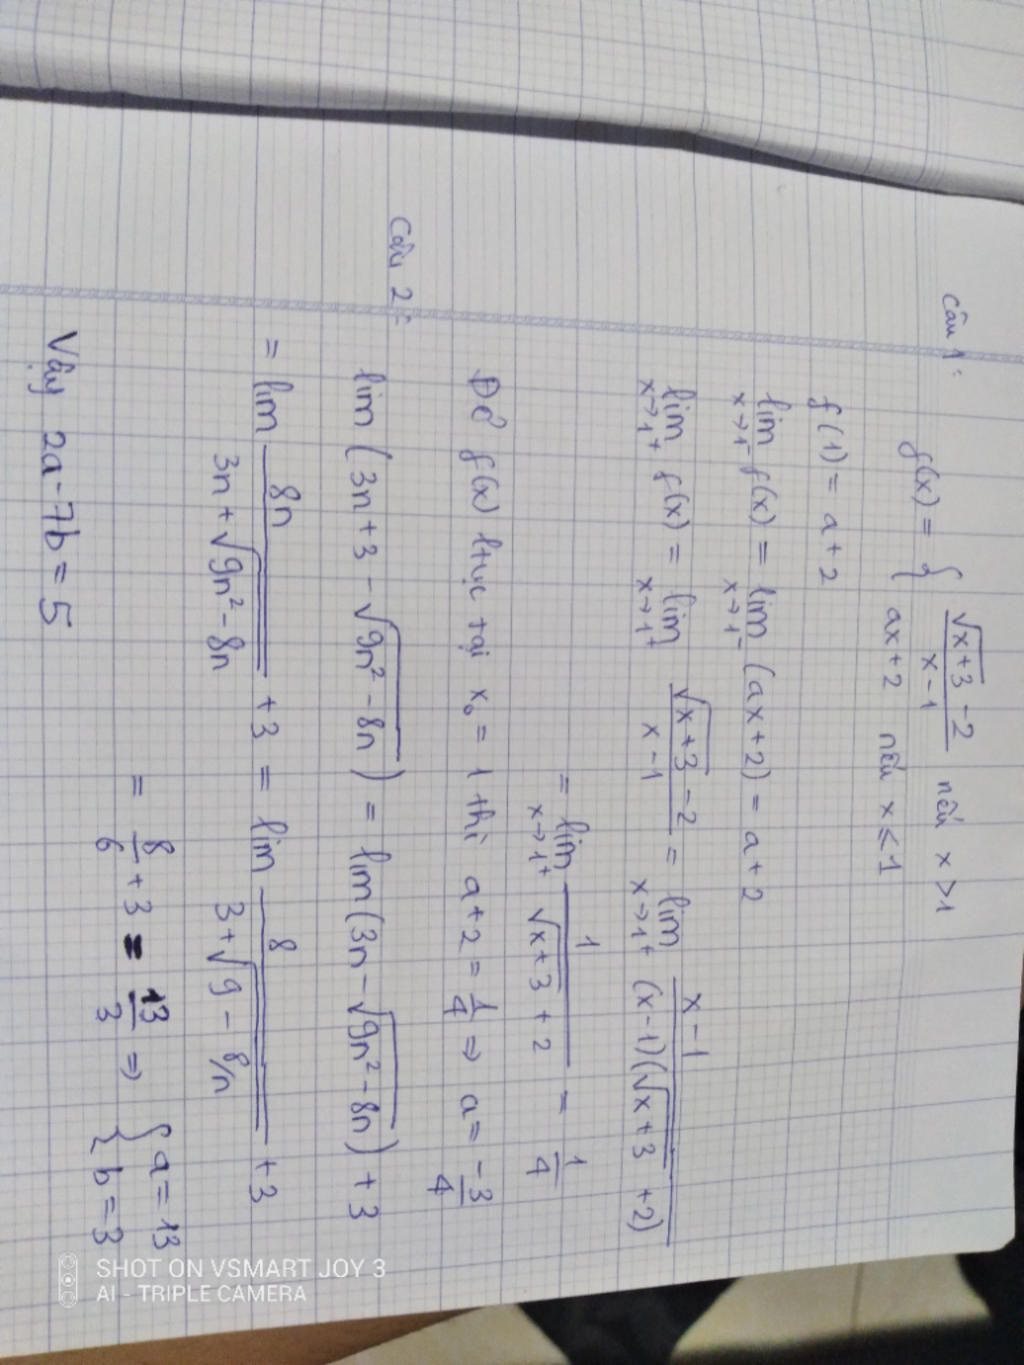 Câu 1:
f(x) = { (√(x+3) - 2)/(x - 1) nếu x > 1
ax + 2 nếu x ≤ 1
f(1) = a + 2
lim x→1⁻ f(x) = lim x→1⁻ (ax + 2) = a + 2
lim x→1⁺ f(x) = lim x→1⁺ (√(x+3) - 2)/(x - 1) = lim x→1⁺ (x - 1)/((x-1)(√(x+3) + 2))
= lim x→1⁺ 1/(√(x+3) + 2) = 1/4
Để f(x) ltục tại x₀ = 1 thì a + 2 = 1/4 ⇒ a = -3/4
Câu 2:
lim (3n + 3 - √(9n² - 8n)) = lim (3n - √(9n² - 8n)) + 3
= lim 8n/(3n + √(9n² - 8n)) + 3 = lim 8/(3 + √(9 - 8/n)) + 3
= 8/6 + 3 = 13/3 ⇒ { a = 13
b = 3
Vậy 2a - 7b = 5
SHOT ON VSMART JOY 3
AI - TRIPLE CAMERA